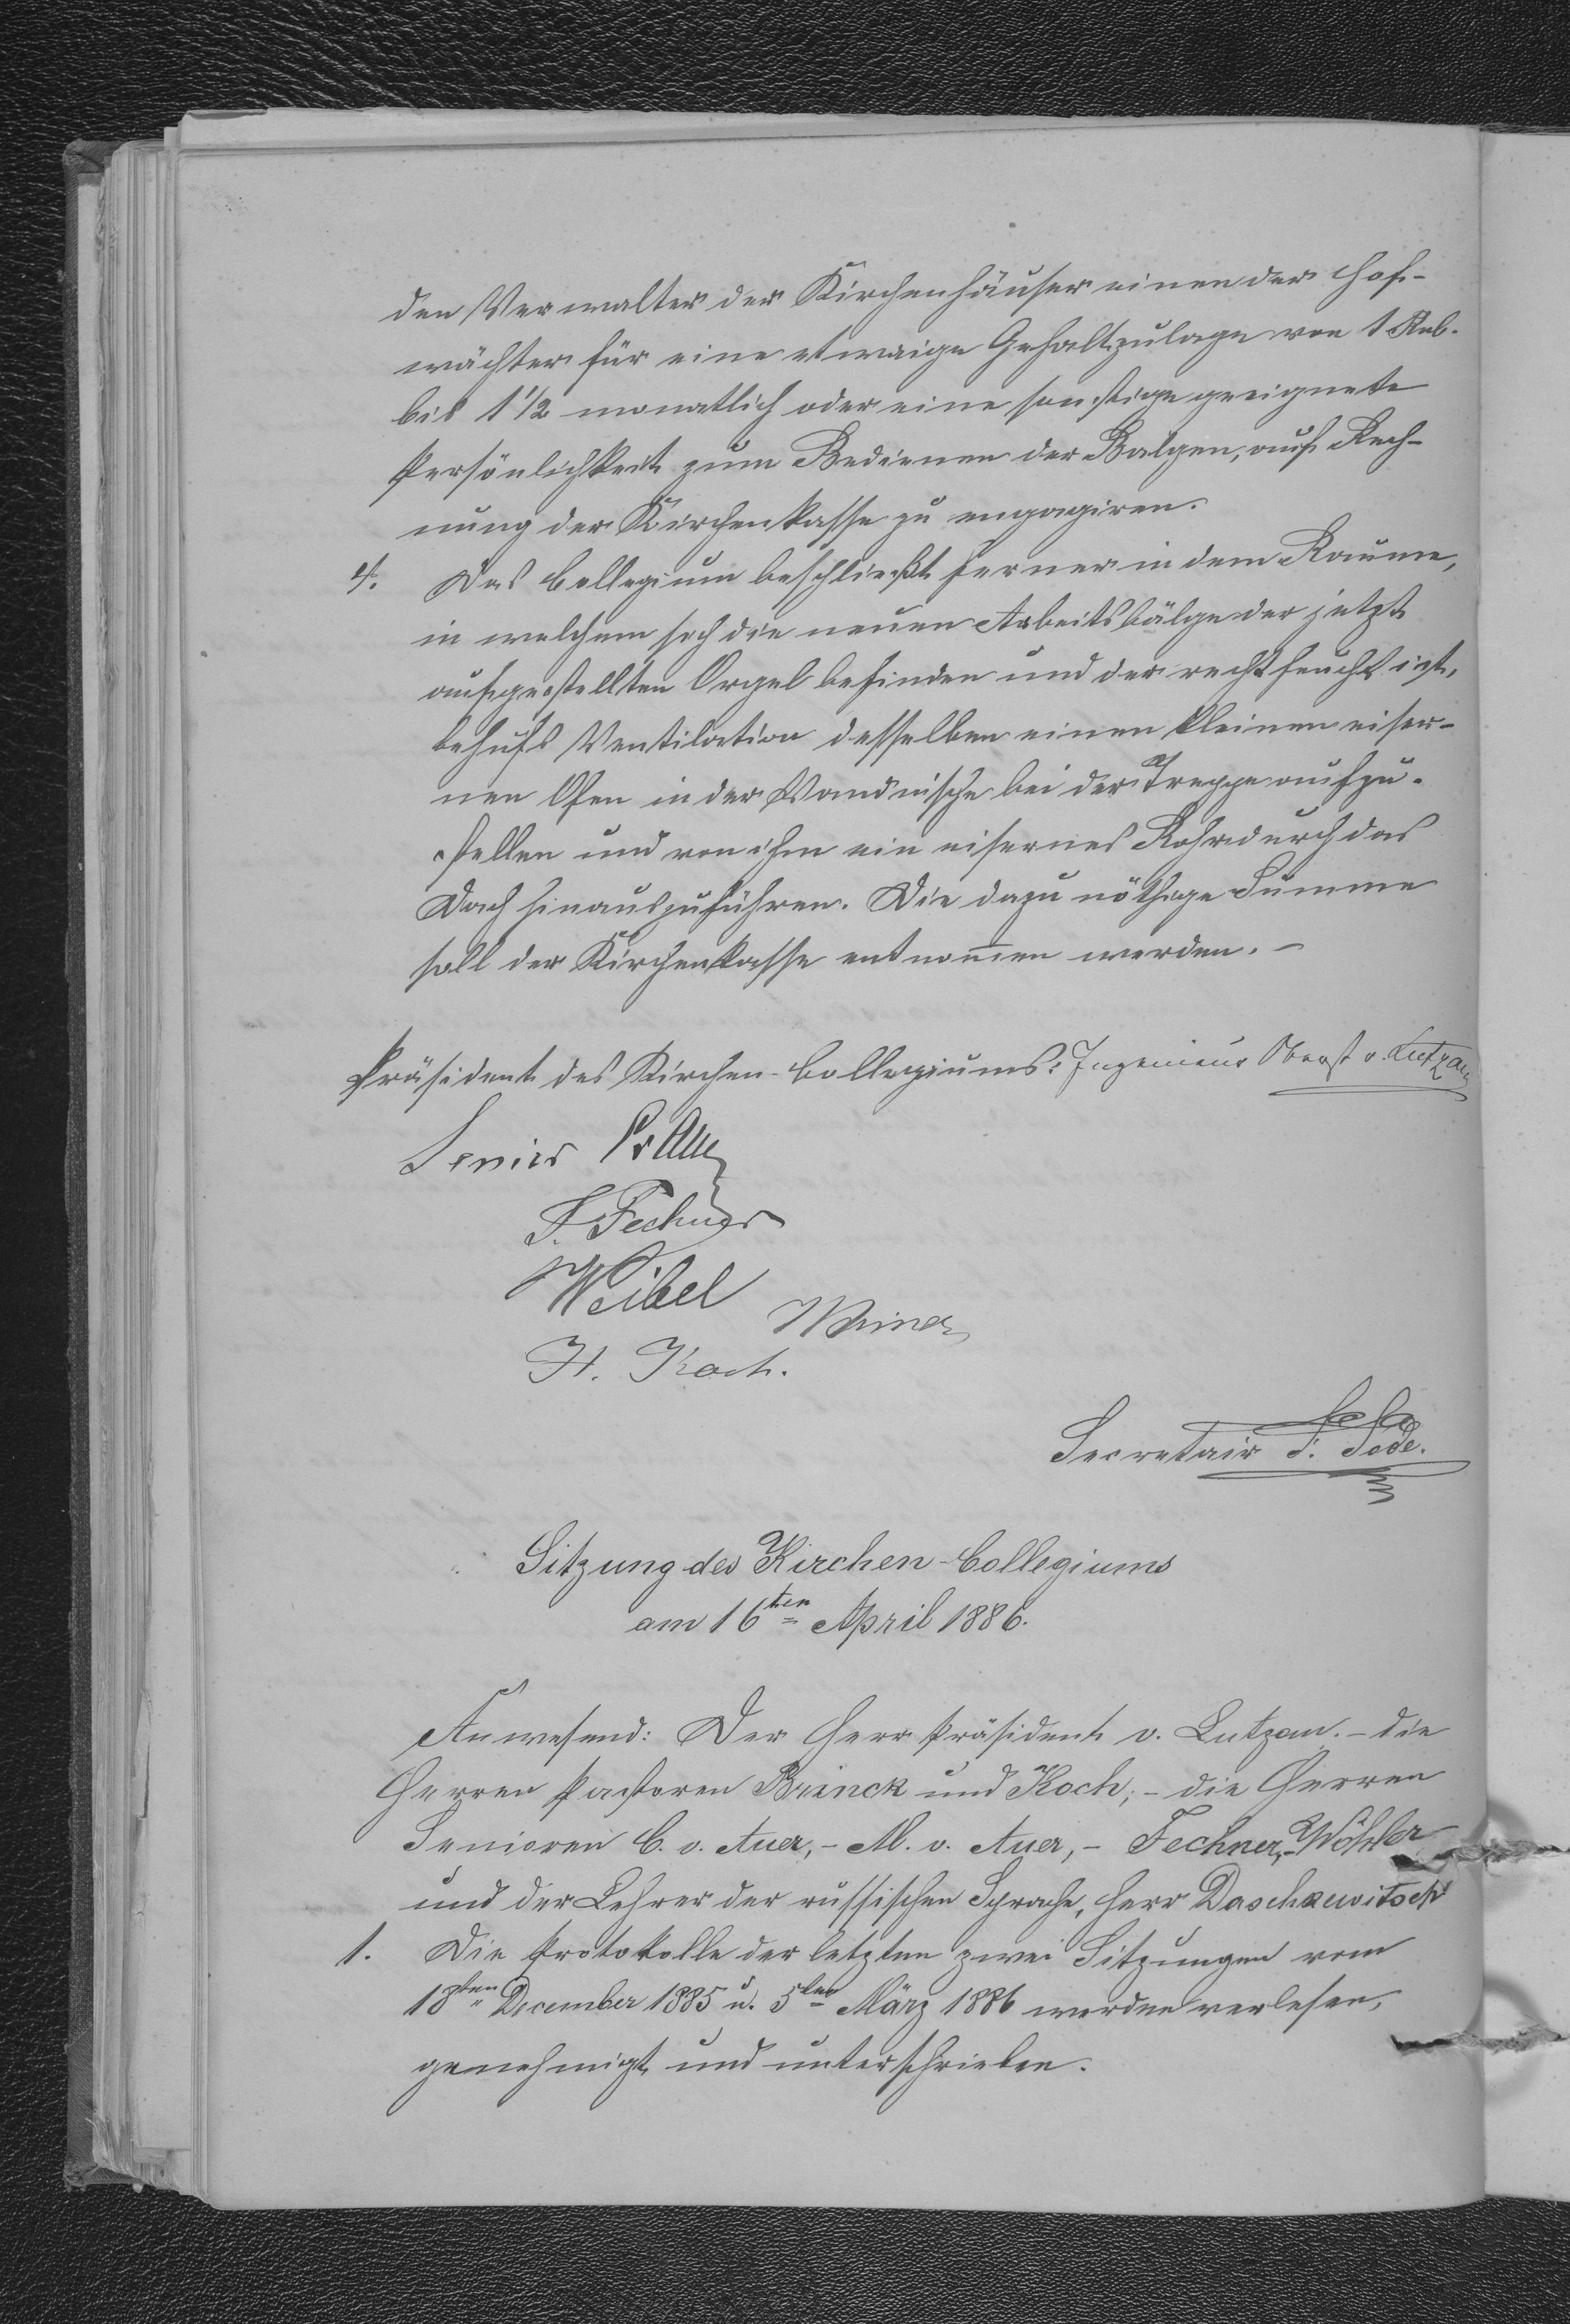 den Verwalter der Kirchenhäuser einen der Hof-
wächter für eine etwaige Gehaltzulage von 1 Rub.
bis 1 1/2 monatlich oder eine sonstige geeignete
Persönlichkeit zum Bedienen der Balgen, auf Rech-
nung der Kirchenkasse zu engagiren.
4. Das Collegium beschließt ferner in dem Raume,
in welchem sich die neuen Arbeitsbälge der jetzt
aufgestellten Orgel befinden und der recht feucht ist,
behufs Ventilation desselben einen kleinen eiser-
nen Ofen in der Wandnische bei der Treppe aufzu-
stellen und von ihm ein eisernes Rohr durch das
Dach hinauszuführen. Die dazu nöthige Summe
soll der Kirchenkasse entnom̄en werden. –
Präsident des Kirchen-Collegiums: Ingenieur Oberst v. Lutzau
Senior
F. Fechner
Weibel
H. Koch.
Secretair
Sitzung des Kirchen-Collegiums
am 16ten April 1886.
Anwesend: Der Herr Präsident v. Lutzau. – die
Herren Pastoren Brinck und Koch; – die Herren
Senioren C. v. Auer, – M. v. Auer, – Fechner, – Wöhler
und der Lehrer der russischen Sprache, Herr Daschkewitsch
1. Die Protokolle der letzten zwei Sitzungen vom
18ten December 1885 u. 5ten März 1886 werden verlesen,
genehmigt und unterschrieben.